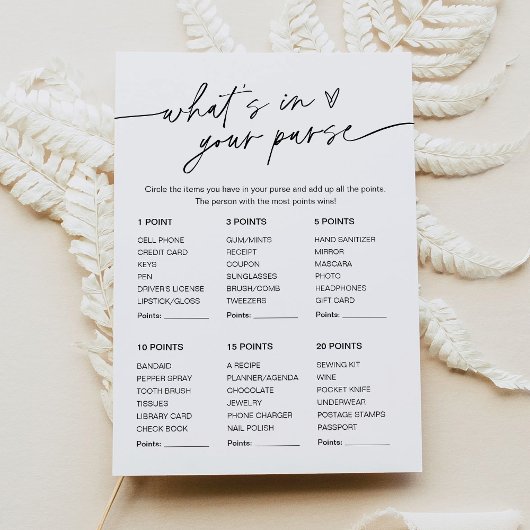 what's in
your purse
Circle the items you have in your purse and add up all the points.
The person with the most points wins!
1 POINT
CELL PHONE
CREDIT CARD
KEYS
PEN
DRIVER'S LICENSE
LIPSTICK/GLOSS
Points:
3 POINTS
GUM/MINTS
RECEIPT
COUPON
SUNGLASSES
BRUSH/COMB
TWEEZERS
Points:
5 POINTS
HAND SANITIZER
MIRROR
MASCARA
PHOTO
HEADPHONES
GIFT CARD
Points:
10 POINTS
BANDAID
PEPPER SPRAY
TOOTH BRUSH
TISSUES
LIBRARY CARD
CHECK BOOK
Points:
15 POINTS
A RECIPE
PLANNER/AGENDA
CHOCOLATE
JEWELRY
PHONE CHARGER
NAIL POLISH
Points:
20 POINTS
SEWING KIT
WINE
POCKET KNIFE
UNDERWEAR
POSTAGE STAMPS
PASSPORT
Points: